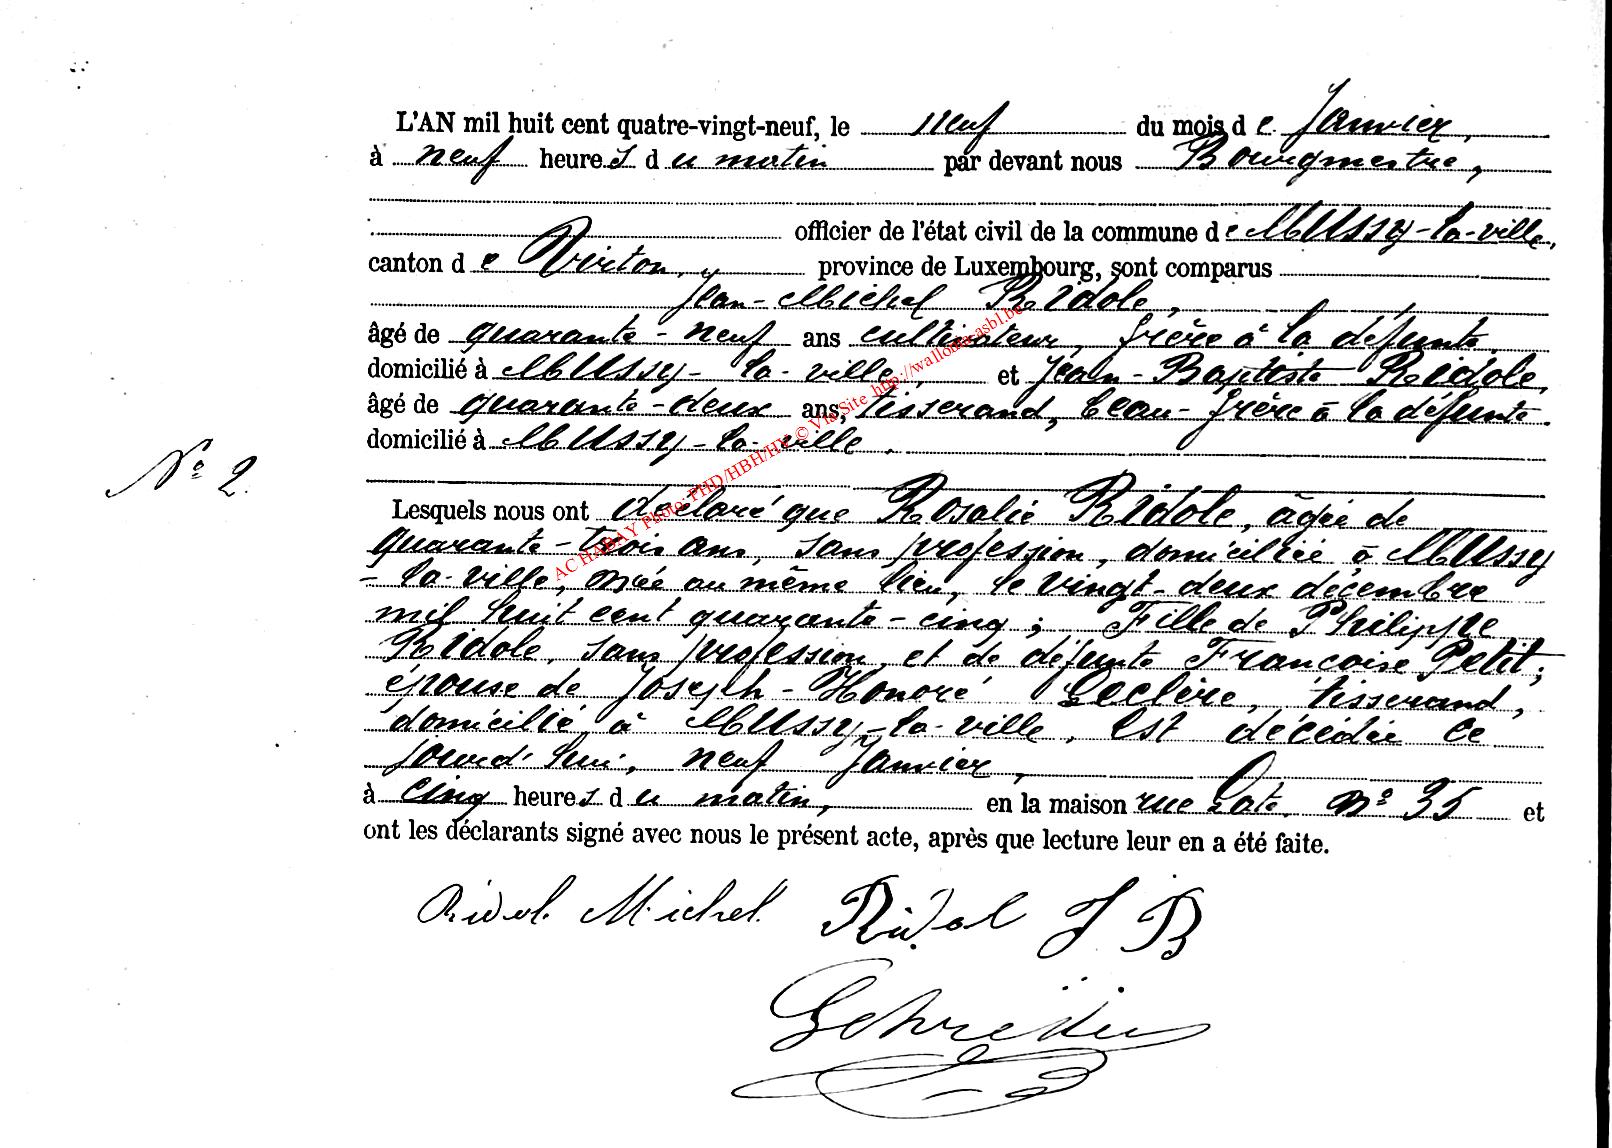 L'AN mil huit cent quatre-vingt-neuf, le neuf du mois de Janvier,
à neuf heures du matin par devant nous Bourgmestre,
officier de l'état civil de la commune de Mussy-la-ville,
canton de Virton, province de Luxembourg, sont comparus
Jean-Michel Ridole,
âgé de quarante-neuf ans cultivateur, frère à la défunte,
domicilié à Mussy-la-ville, et Jean-Baptiste Ridole,
âgé de quarante-deux ans, tisserand, beau-frère à la défunte.
domicilié à Mussy-la-ville.
N° 2.
Lesquels nous ont déclaré que Rosalie Ridole, âgée de
quarante-trois ans, sans profession, domiciliée à Mussy
-la-ville, née au même lieu, le vingt-deux décembre
mil huit cent quarante-cinq ; Fille de Philippe
Ridole, sans profession, et de défunte Francoise Petit ;
épouse de Joseph-Honoré Leclère, tisserand,
domicilié à Mussy-la-ville, est décédée ce
jourd'hui, neuf Janvier,
à cinq heures du matin, en la maison rue N° 35 et
ont les déclarants signé avec nous le présent acte, après que lecture leur en a été faite.
Ridol. Michel. Ridol J B
AC HABAY Photo: PHD/HBH/HY © Via Site http://wallonia-asbl.be